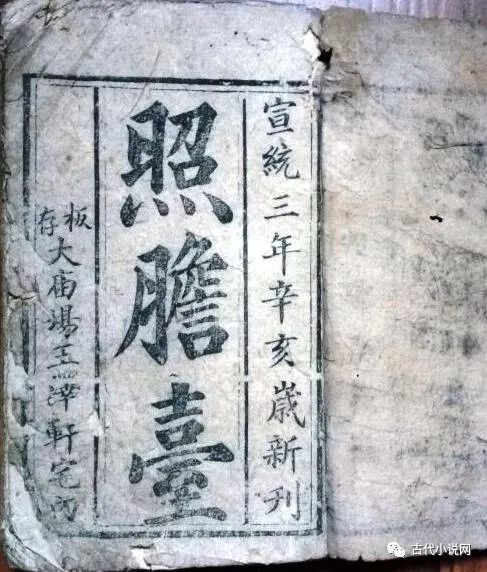 宣統三年辛亥嵗新刊
照膽臺
板存大庙場王澤軒宅内
古代小说网